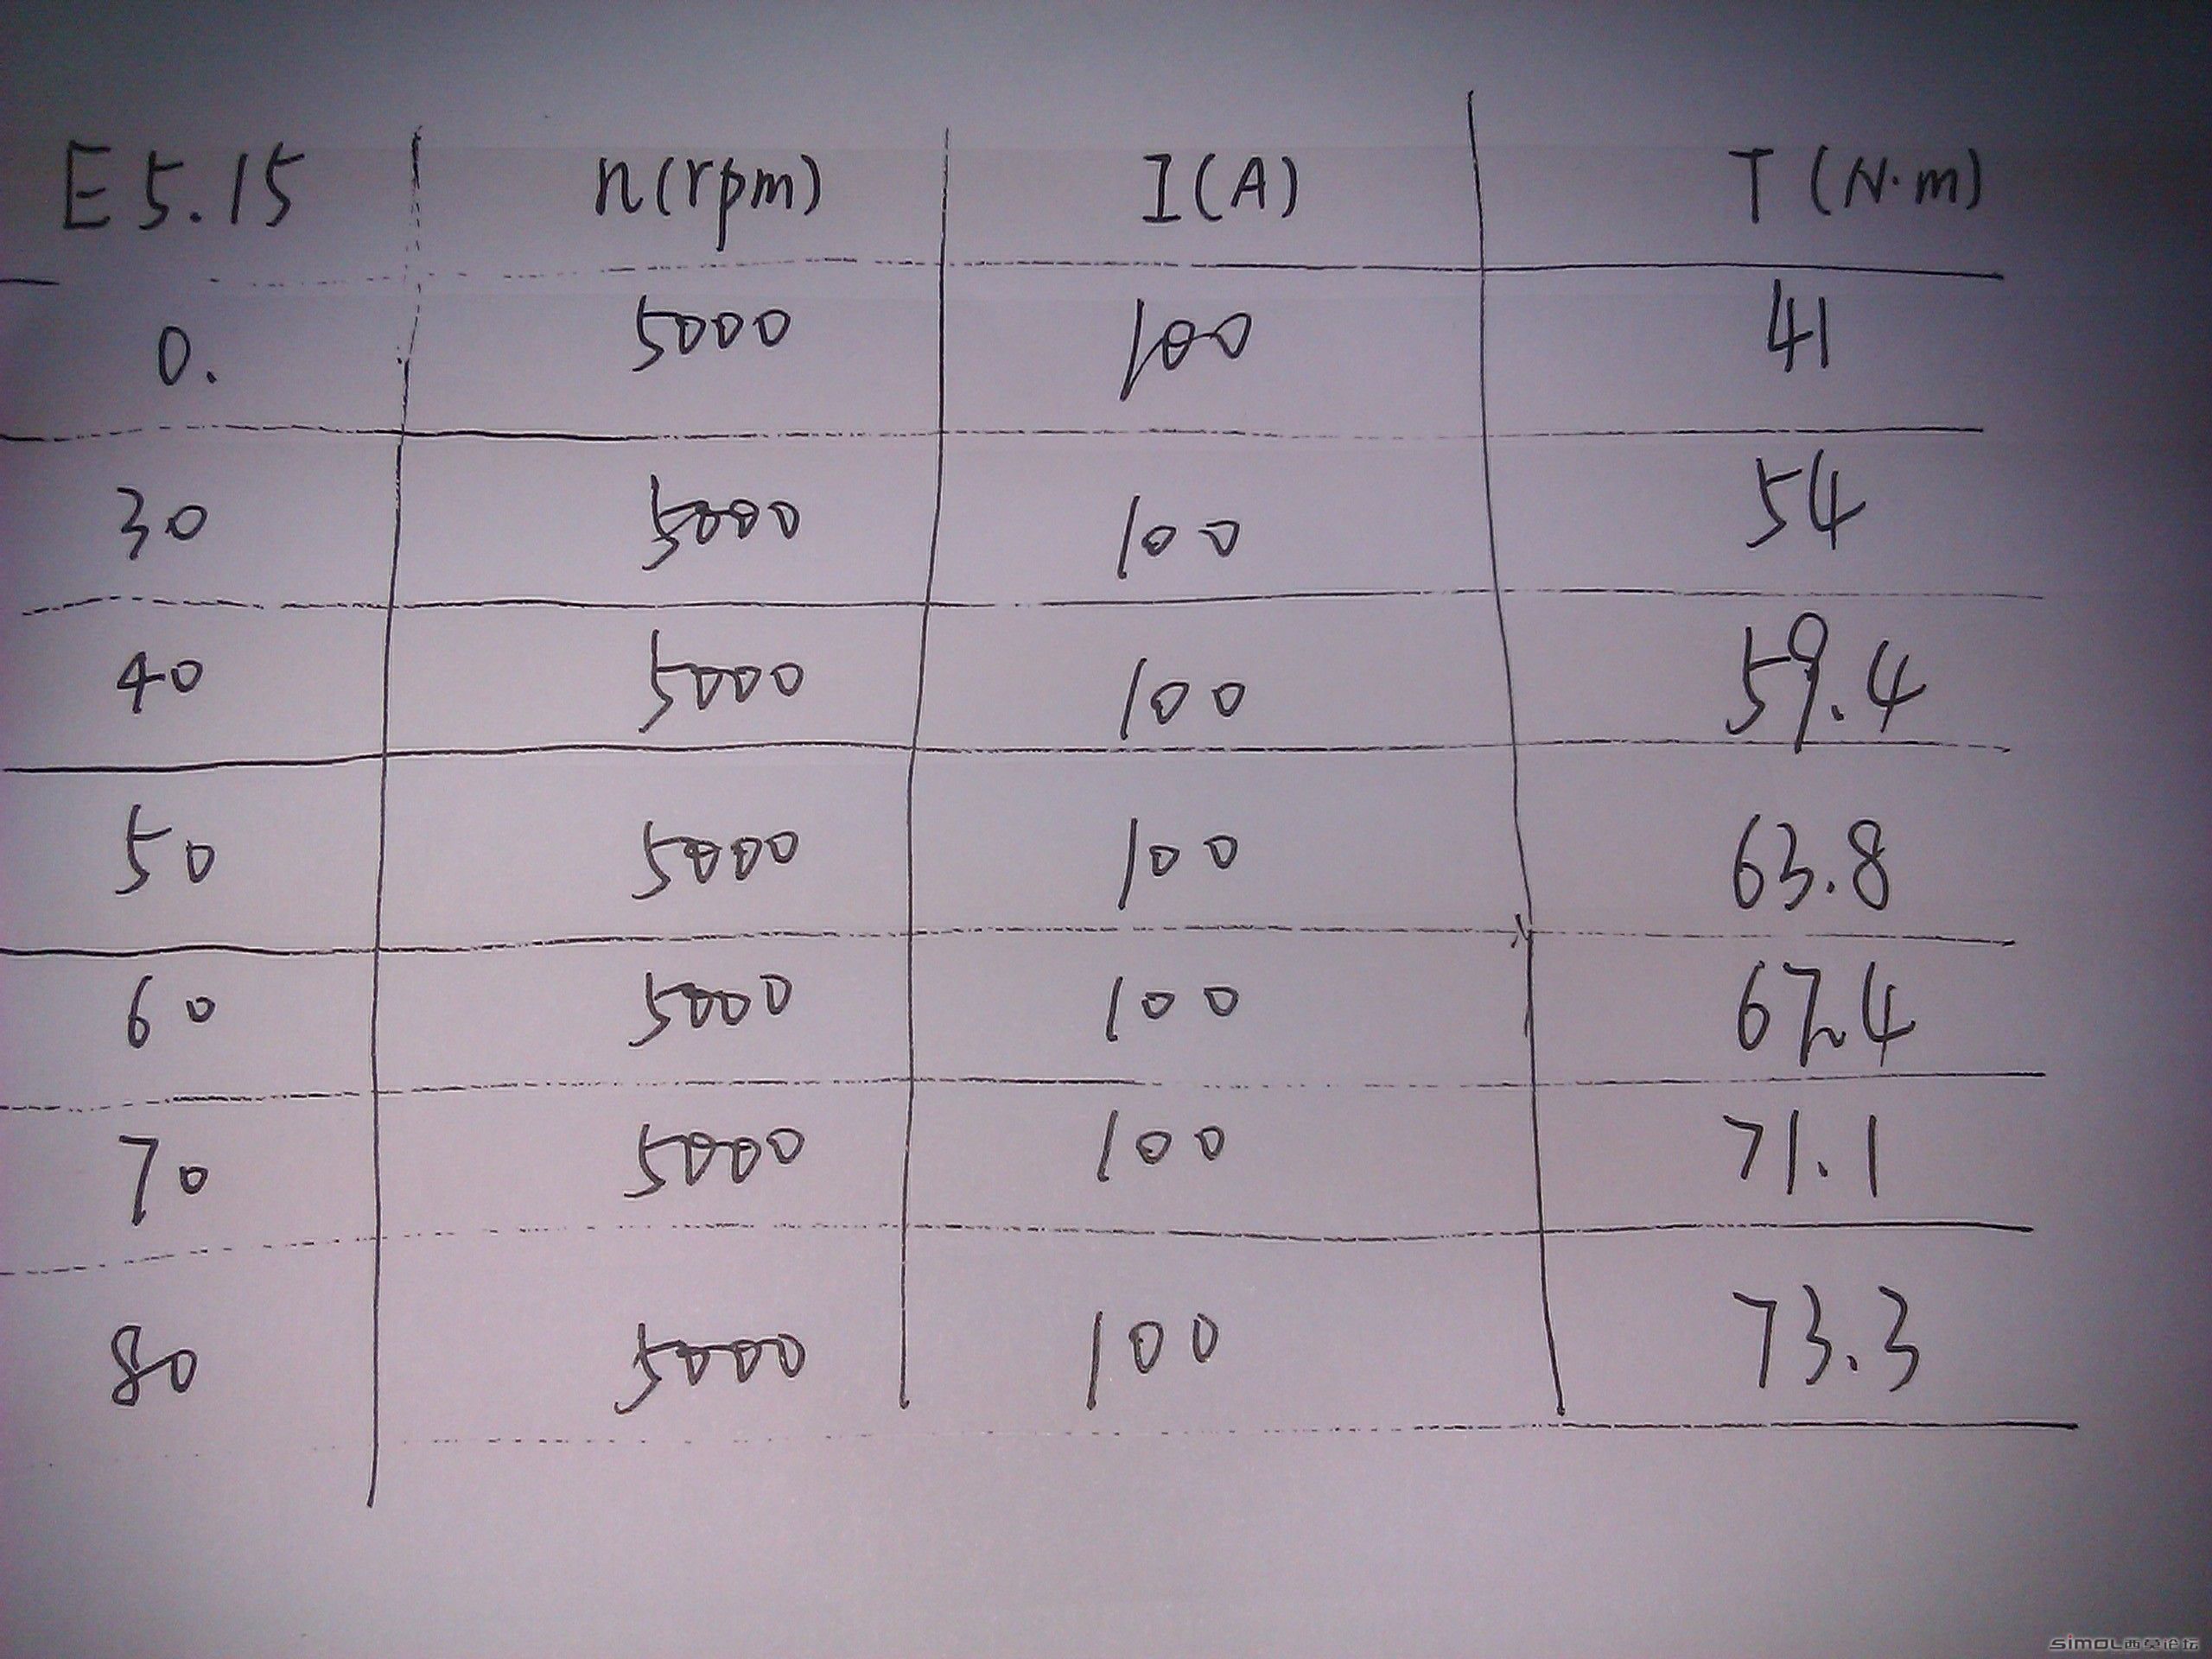 E5.15 n(rpm) I(A) T(N·m)
0. 5000 100 41
30 5000 100 54
40 5000 100 59.4
50 5000 100 63.8
60 5000 100 67.4
70 5000 100 71.1
80 5000 100 73.3
simol西莫论坛